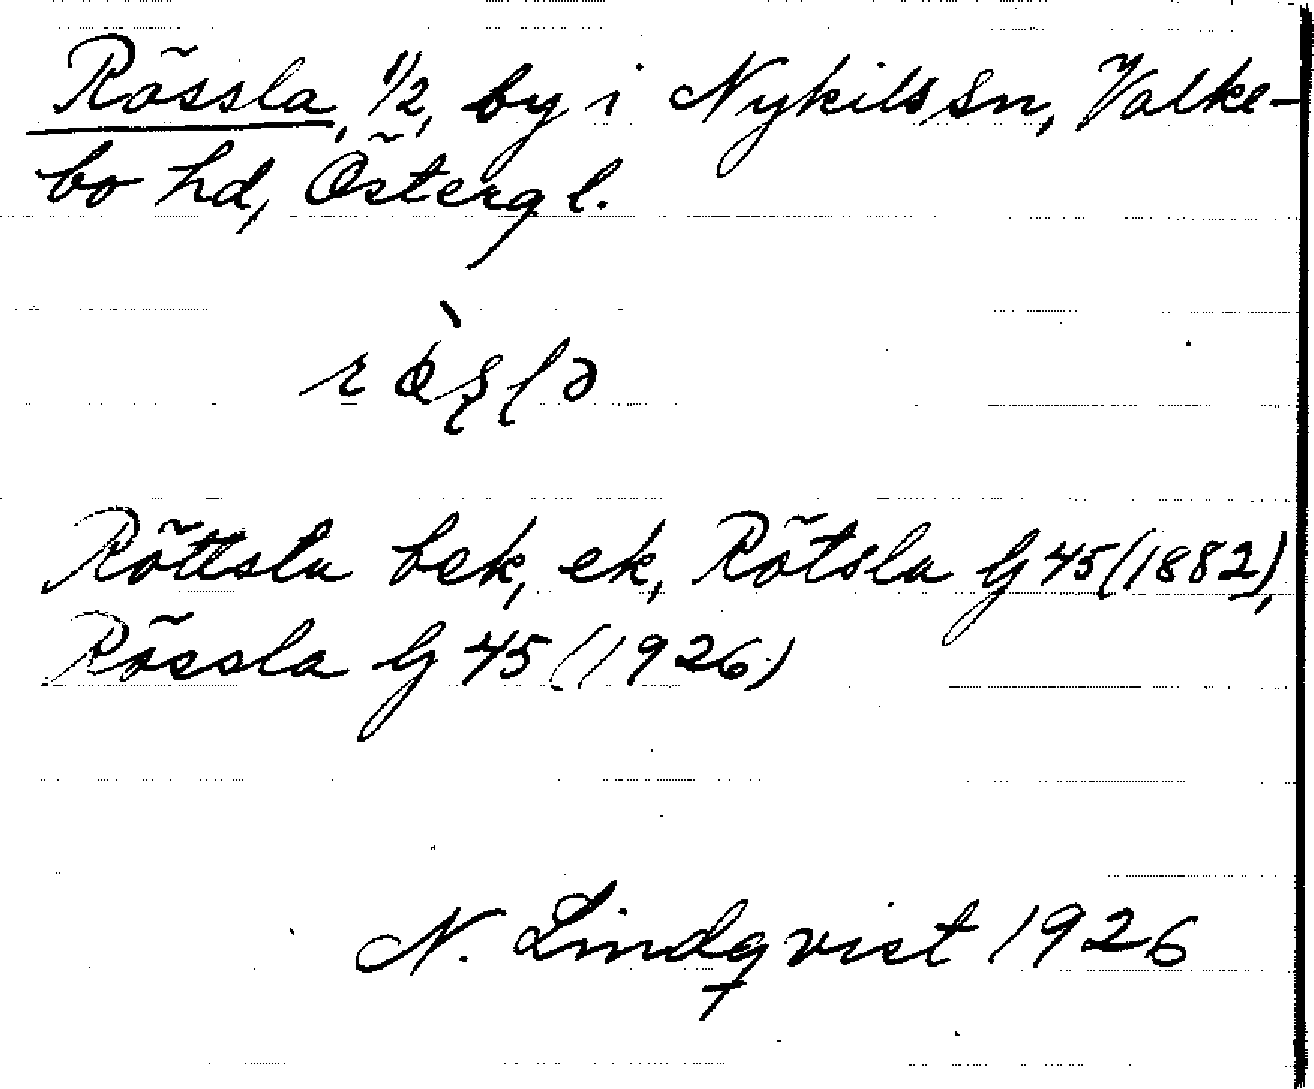 Rössla, 1/2, by i Nykils sn, Valke-
bo hd, Östergl.
Röttsla bek, ek, Rötsla G 45 (1882),
Rössla G 45 (1926)
N. Lindqvist 1926